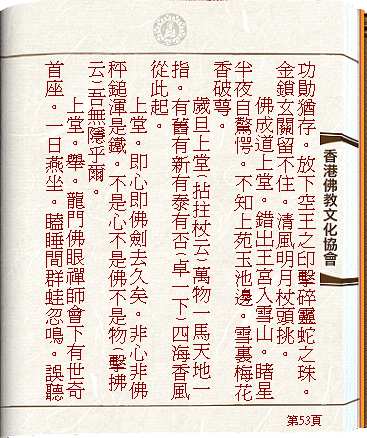 香港佛教文化協會
功勛猶存。放下空王之印擊碎靈蛇之珠。
金鎖玄關留不住。清風明月杖頭挑。
佛成道上堂。錯出王宮入雪山。睹星
半夜自驚愕。不知上苑玉池邊。雪裏梅花
香破萼。
歲旦上堂(拈拄杖云)萬物一馬天地一
指。有舊有新有泰有否(卓一下)四海香風
從此起。
上堂。即心即佛劍去久矣。非心非佛
秤鎚渾是鐵。不是心不是佛不是物(擊拂
云)吾無隱乎爾。
上堂。舉。龍門佛眼禪師會下有世奇
首座。一日燕坐。瞌睡間群蛙忽鳴。誤聽
第53頁